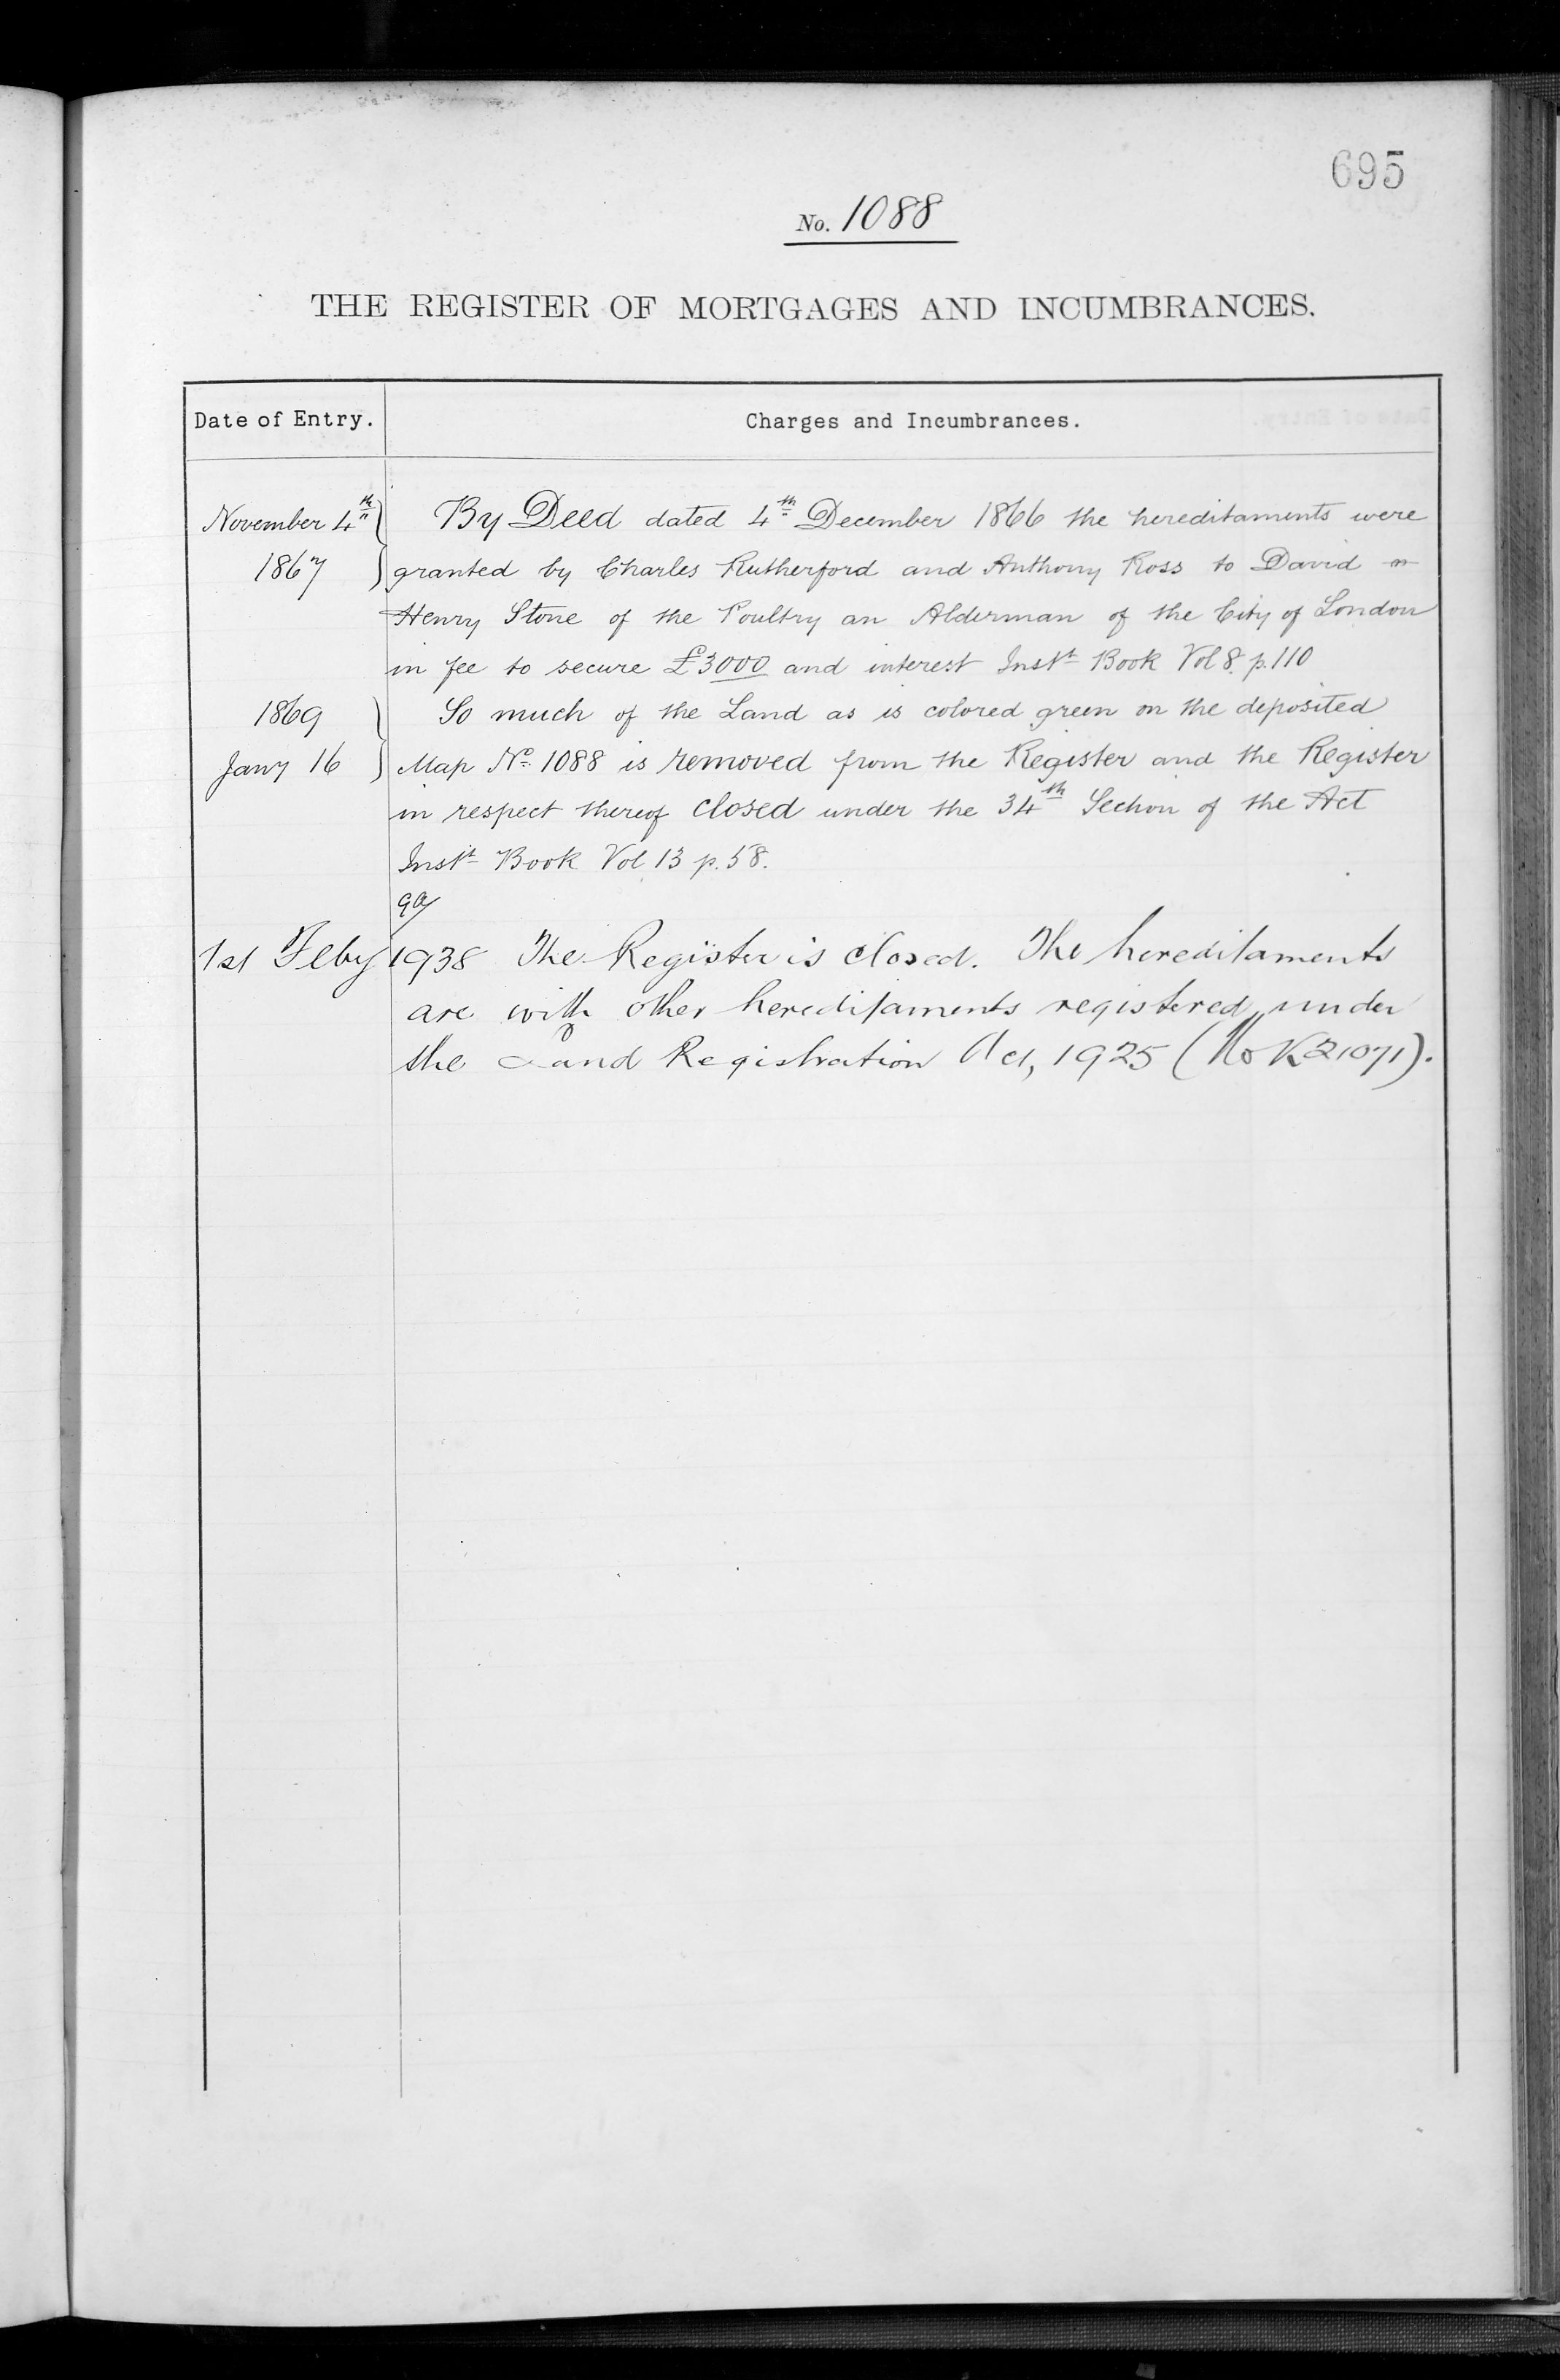 695
No. 1088
THE REGISTER OF MORTGAGES AND INCUMBRANCES.
Date of Entry. Charges and Incumbrances.
November 4th By Deed dated 4th December 1866 the hereditaments were
1867 granted by Charles Rutherford and Anthony Ross to David
Henry Stone of the Poultry an Alderman of the City of London
in fee to secure £3000 and interest Inst Book Vol 8. p. 110
1869 So much of the Land as is colored green on the deposited
Jany 16 Map No. 1088 is removed from the Register and the Register
in respect thereof closed under the 34th Section of the Act
Inst Book Vol 13 p. 58.
1st Feby 1938 The Register is closed. The hereditaments
are with other hereditaments registered under
the Land Registration Act, 1925 (No K21071).